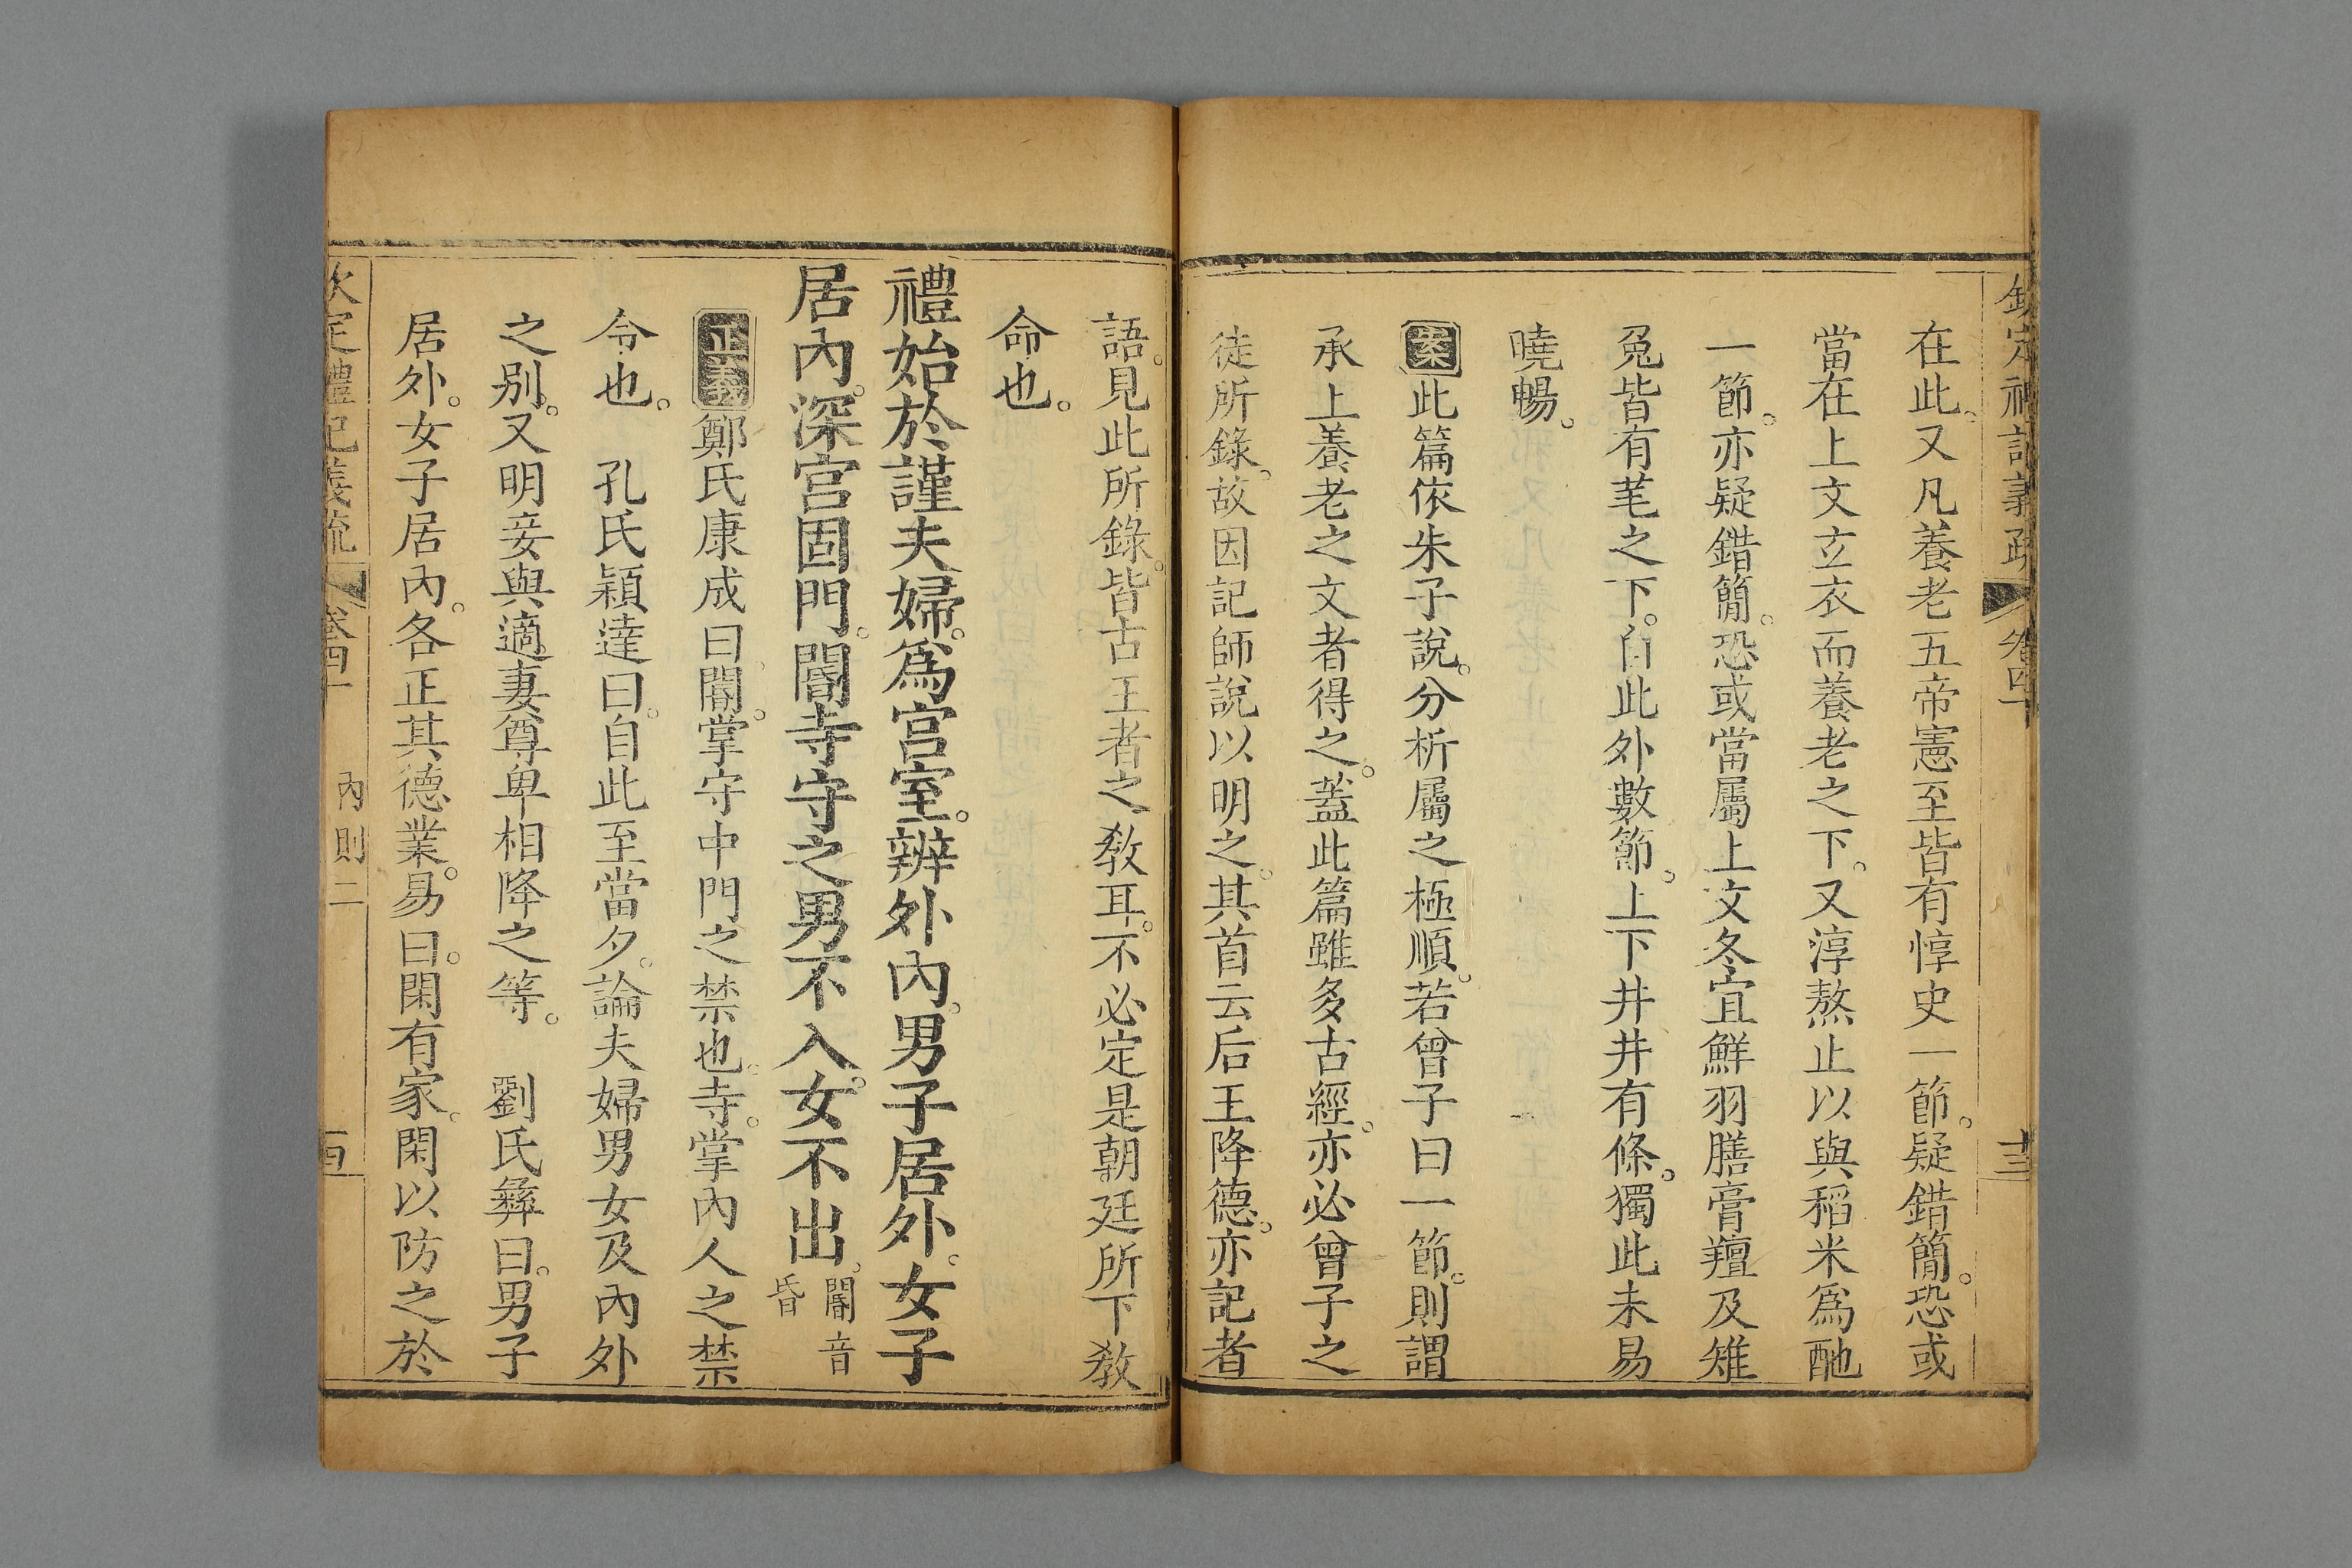 欽定禮記義疏 卷四十 十三
在此。又凡養老五帝憲至皆有惇史一節。疑錯簡。恐或
當在上文立衣而養老之下。又淳熬止以與稻米爲酏
一節。亦疑錯簡。恐或當屬上文冬宜鮮羽膳膏羶及雉
兔皆有芼之下。自此外數節。上下井井有條。獨此未易
曉暢。
案此篇依朱子說。分析屬之極順。若曾子曰一節。則謂
承上養老之文者得之。蓋此篇雖多古經。亦必曾子之
徒所錄。故因記師說以明之。其首云后王降德。亦記者
語。見此所錄。皆古王者之敎耳。不必定是朝廷所下敎
命也。
禮始於謹夫婦。爲宮室。辨外內。男子居外。女子
居內。深宮固門。閽寺守之男不入。女不出。閽音昏
正義鄭氏康成曰。閽。掌守中門之禁也。寺。掌內人之禁
令也。 孔氏穎達曰。自此至當夕。論夫婦男女及內外
之別。又明妾與適妻尊卑相降之等。 劉氏彝曰。男子
居外。女子居內。各正其德業。易曰。閑有家。閑以防之於
欽定禮記義疏 卷四十 內則二